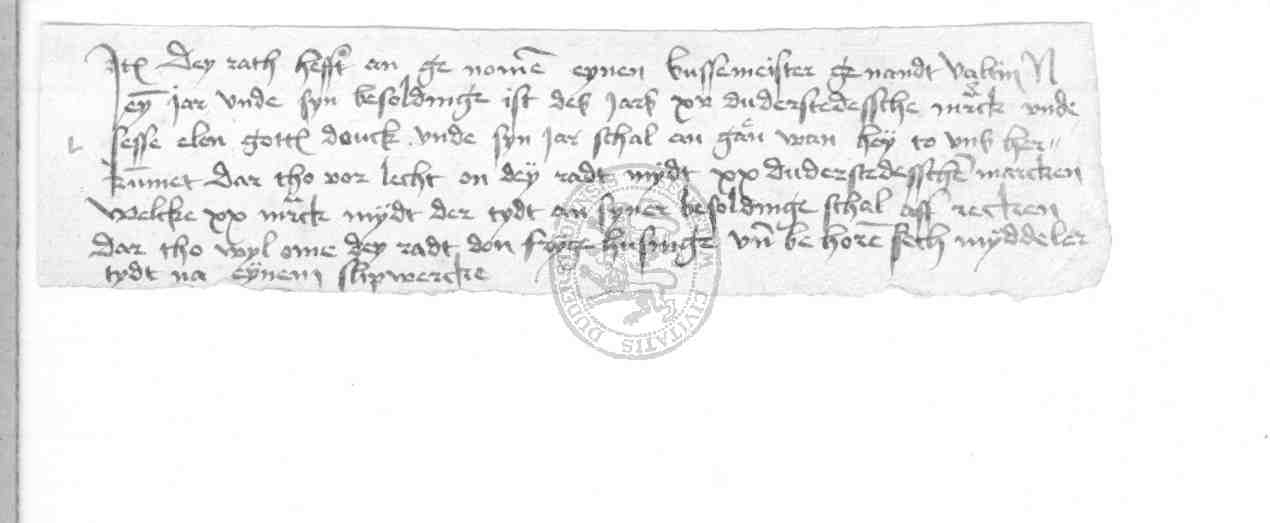 Itē dey rath hefft an ge nomē eynen bussemeister ge nandt valtin N
eyn jar vnde syn besoldinge ist des jars xv duderstedessche mrck vnde
sesse elen gottē douck. vnde syn jar schal an gan wan hey to vns her-
kummet dar tho vor lecht on dey radt mydt xx duderstedesschē marcken
welcke xx mrck mydt der tydt an syner besoldinge schal aff recken
dar tho wyl ome dey radt don frige husinge vñ be horē sech myddeler
tydt na eynem slipwercke
SIGILLUM CIVITATIS